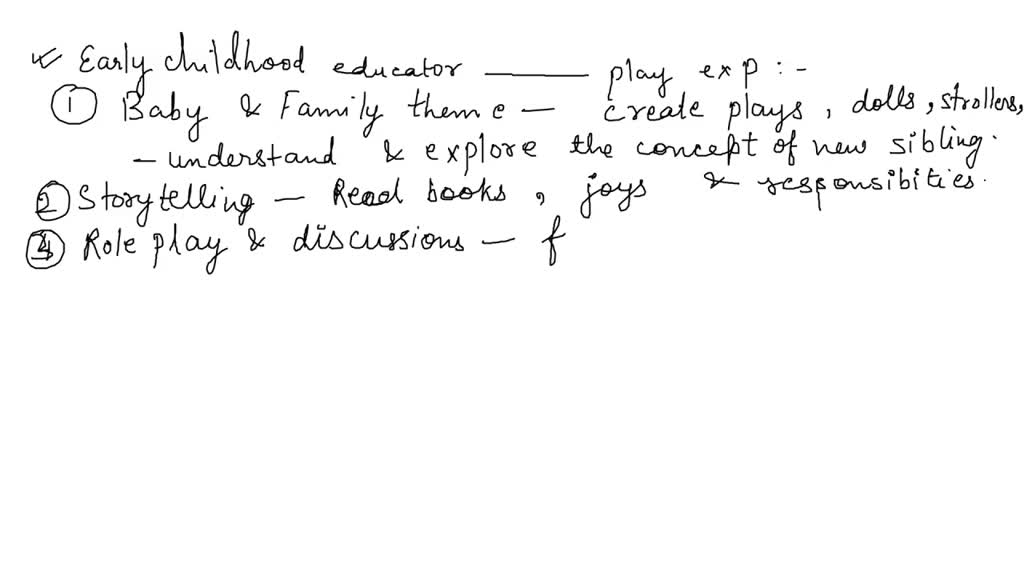 ✓ Early childhood educator —— play exp :-
① Baby & Family theme — create plays, dolls, strollers,
- understand & explore the concept of new sibling.
② Storytelling — Read books, joys & responsibities.
③ Role play & discussions — f